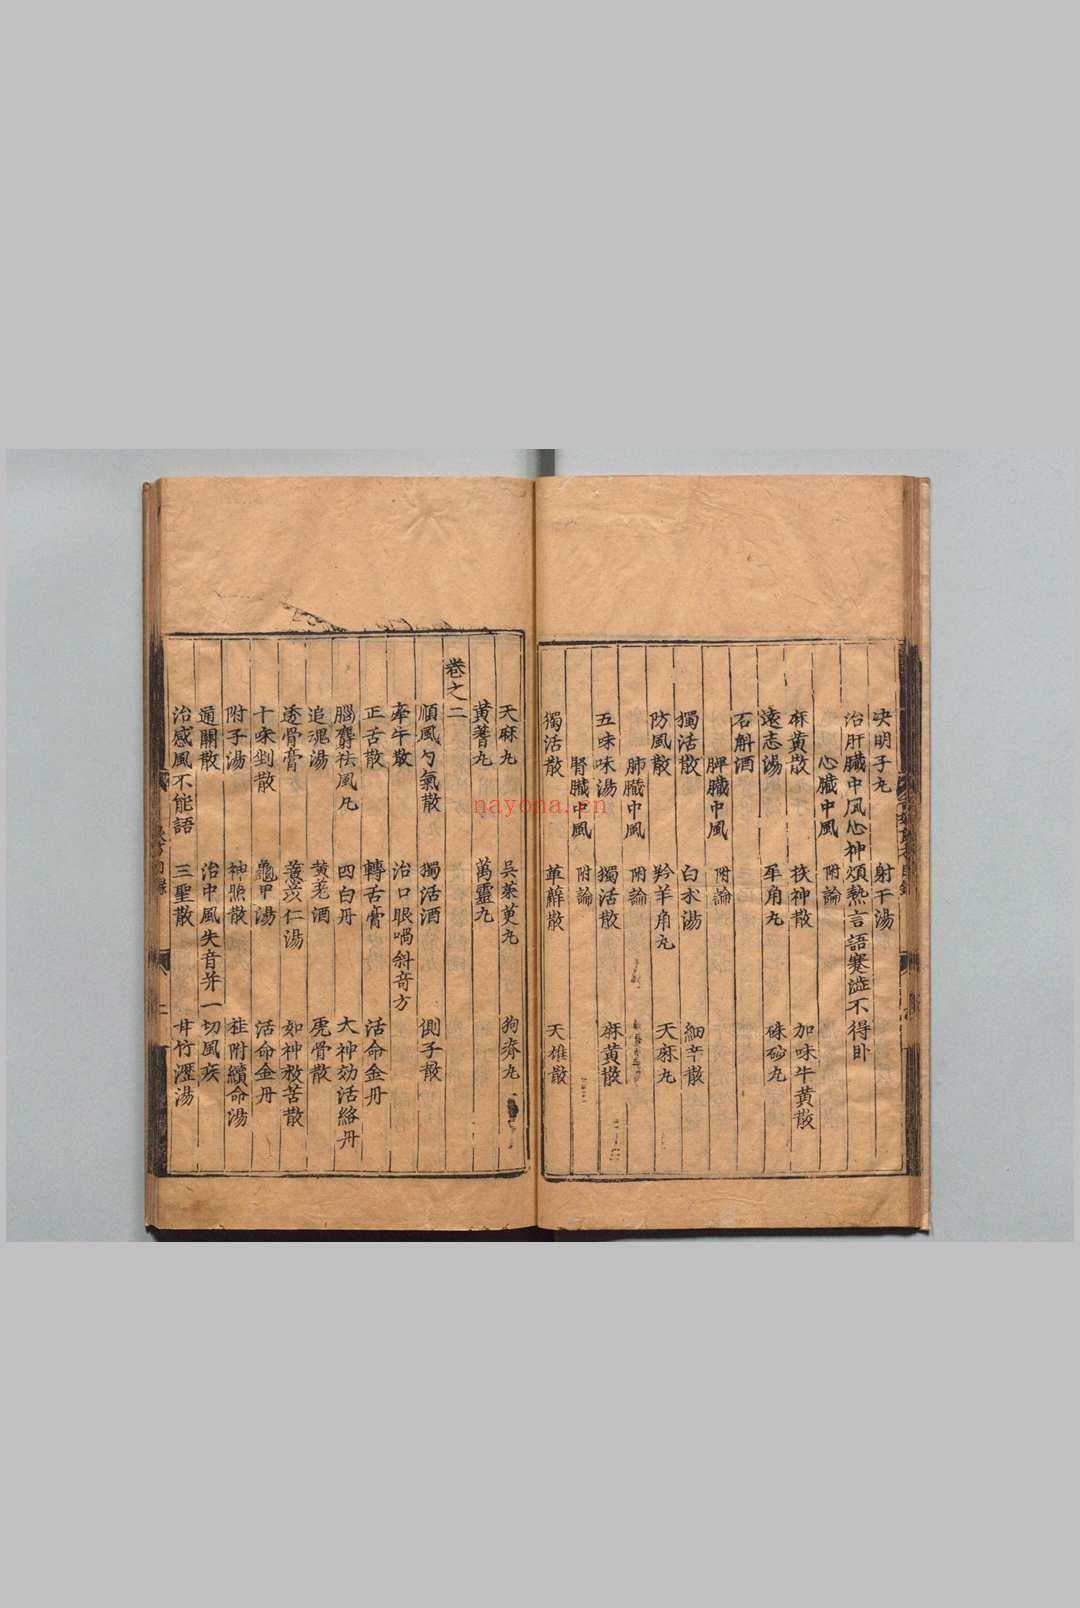 決明子丸 射干湯
治肝臟中風心神煩熱言語蹇澁不得卧
心臟中風 附論
麻黃散 茯神散 加味牛黃散
遠志湯 犀角丸 硃砂丸
石斛酒
脾臟中風 附論
獨活散 白术湯 細辛散
防風散 羚羊角丸 天麻丸
肺臟中風 附論
五味味湯 獨活散 麻黃散
腎臟中風 附論
獨活散 萆薢散 天雄散
天麻丸 吳茱萸丸 狗脊丸
黃蓍丸 萬靈丸
卷之二
順風勻氣散 獨活酒 側子散
牽牛散 治口眼喎斜奇方
正舌散 轉舌膏 活命金丹
腦麝祛風丸 四白丹 大神効活絡丹
追魂湯 黃芪酒 虎骨散
透骨膏 薏苡仁湯 如神救苦散
十味剉散 龜甲湯 活命金丹
附子湯 神照散 桂附續命湯
通關散 治中風失音并一切風疾
治感風不能語 三聖散 竹瀝湯
nayona.cn